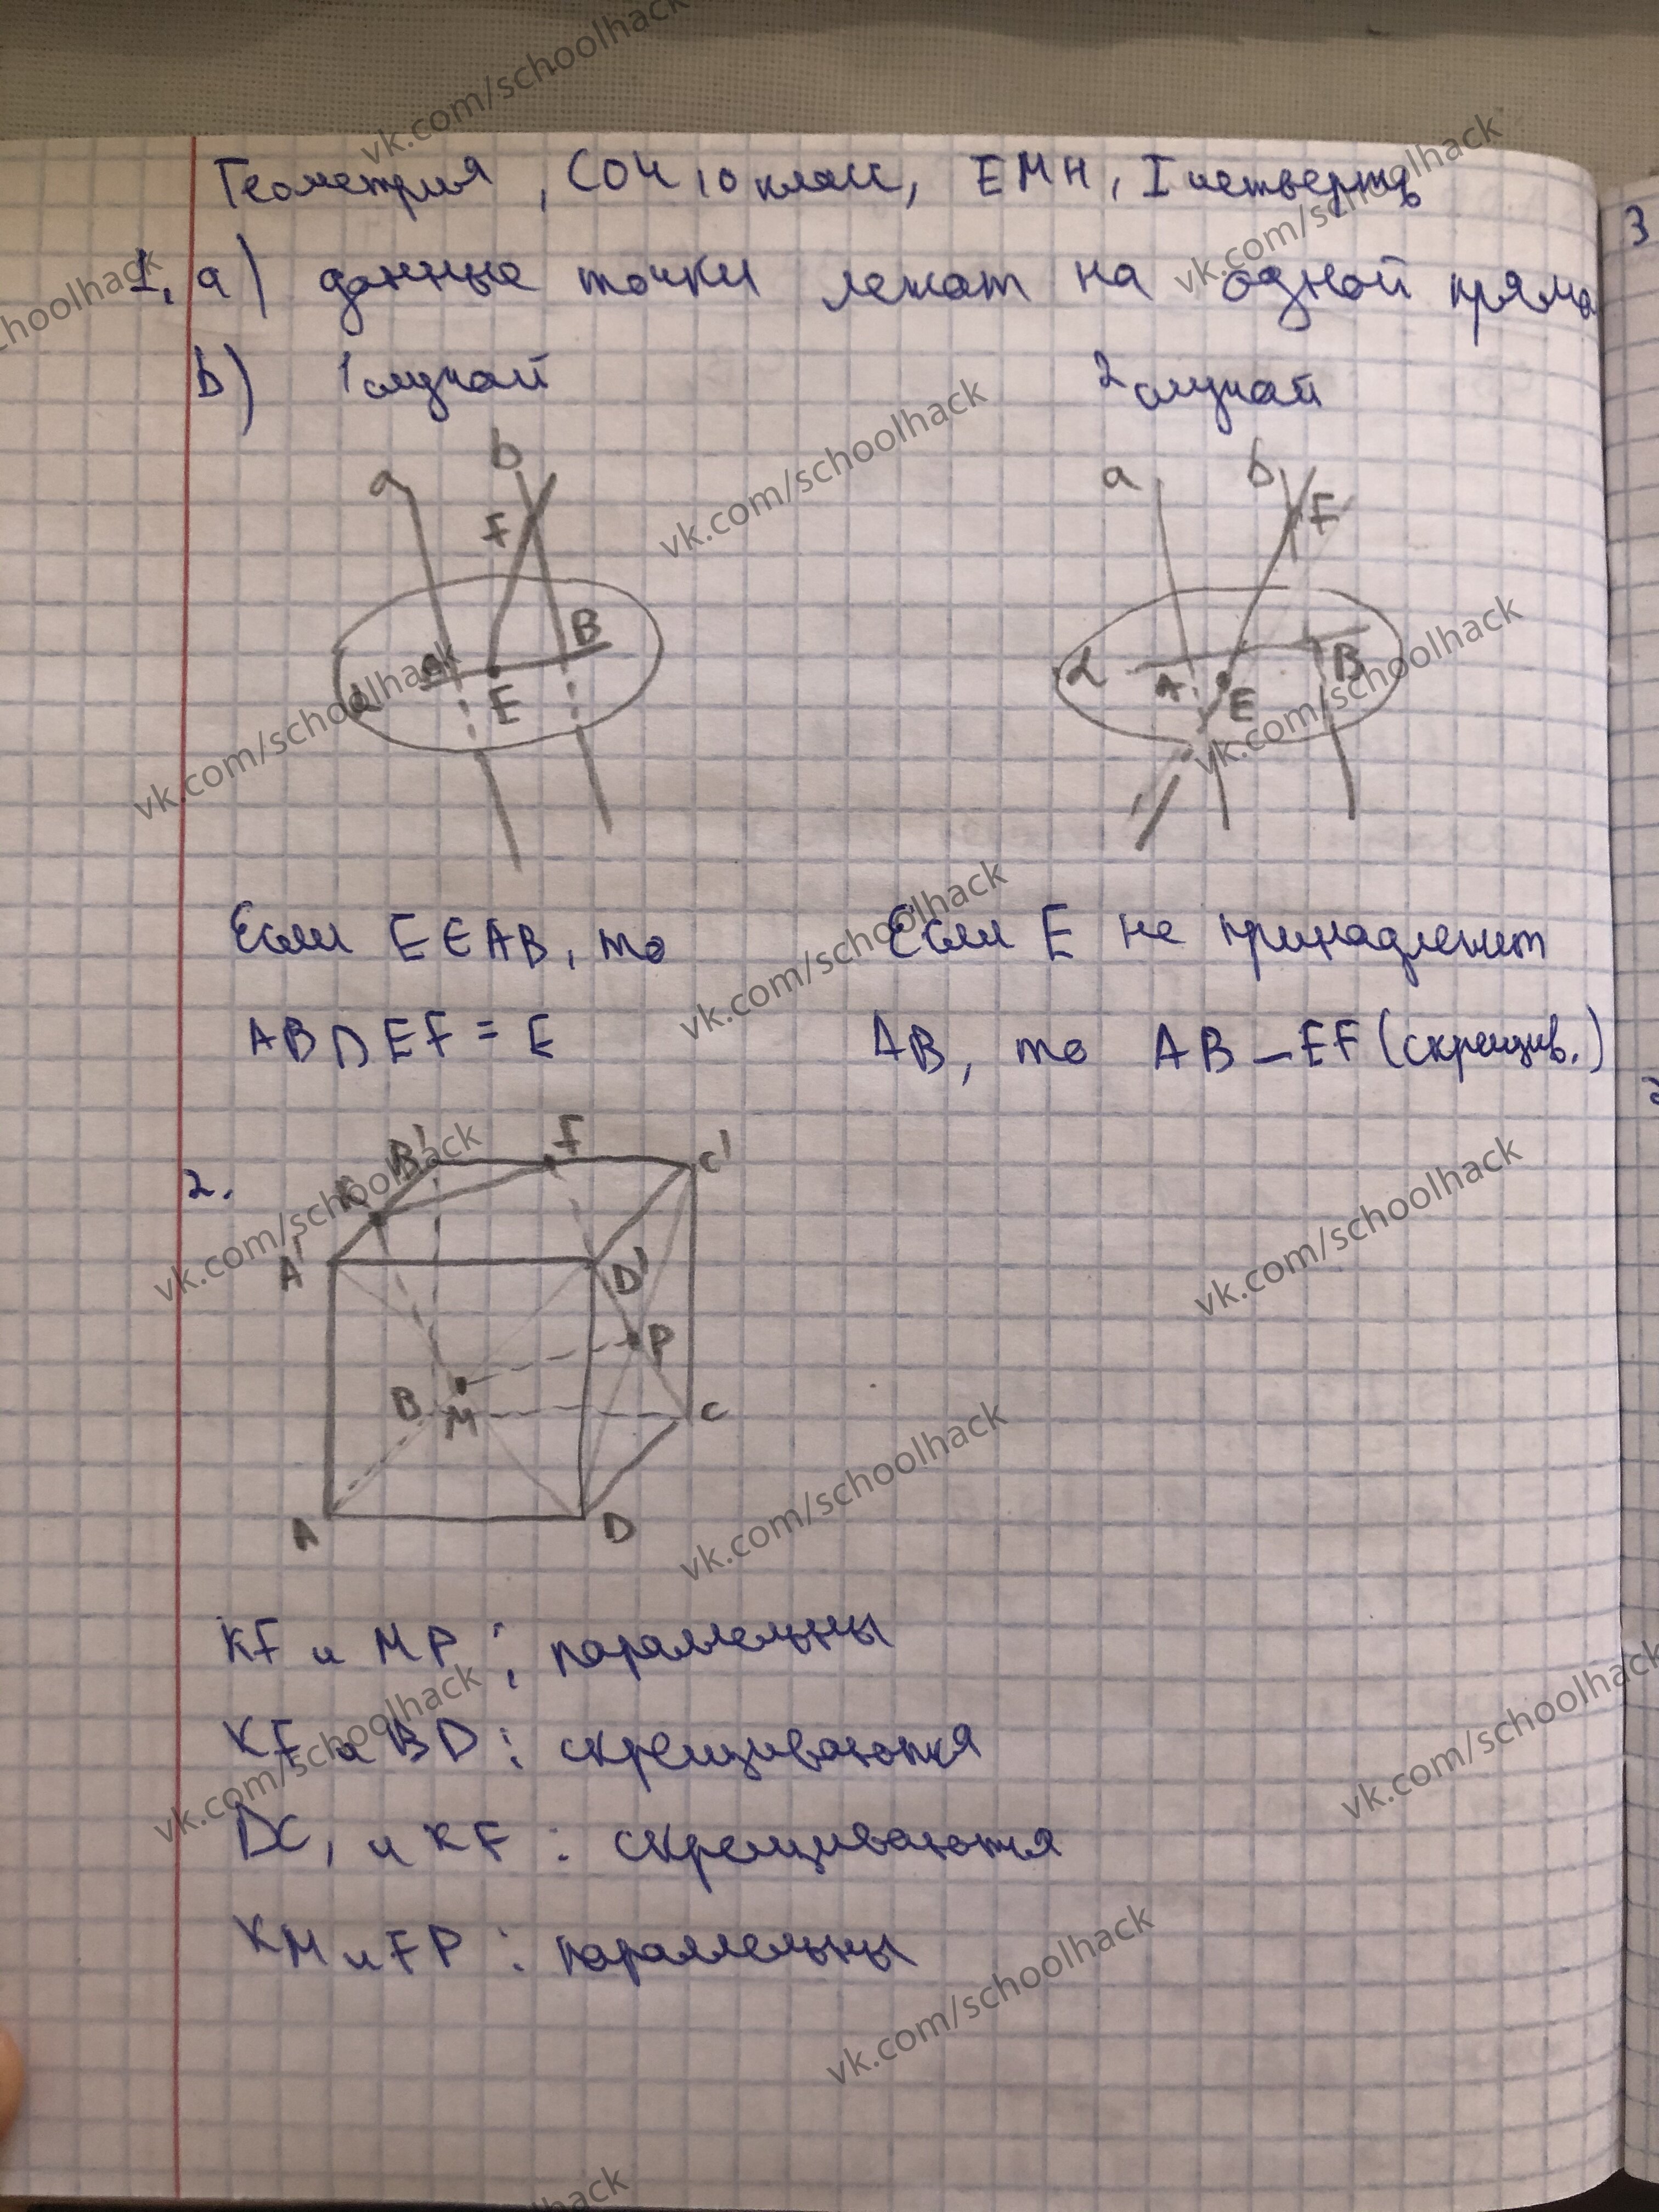 vk.com/schoolhack
vk.com/schoolhack
Геометрия, СОЧ 10 класс, ЕМН, I четверть
3
1. а) данные точки лежат на одной прямо
b) 1 случай 2 случай
a b F B E
a b F α A E B
vk.com/schoolhack
vk.com/schoolhack
vk.com/schoolhack
Если E∈AB, то Если E не принадлежит
AB∩EF = E AB, то AB – EF (скрещив.)
vk.com/schoolhack
2.
B' F C'
K
A' D'
P
B M C
A D
vk.com/schoolhack
vk.com/schoolhack
vk.com/schoolhack
KF и MP : параллельны
KF и BD : скрещиваются
DC, и KF : скрещиваются
KM и FP : параллельны
vk.com/schoolhack
vk.com/schoolhack
vk.com/schoolhack